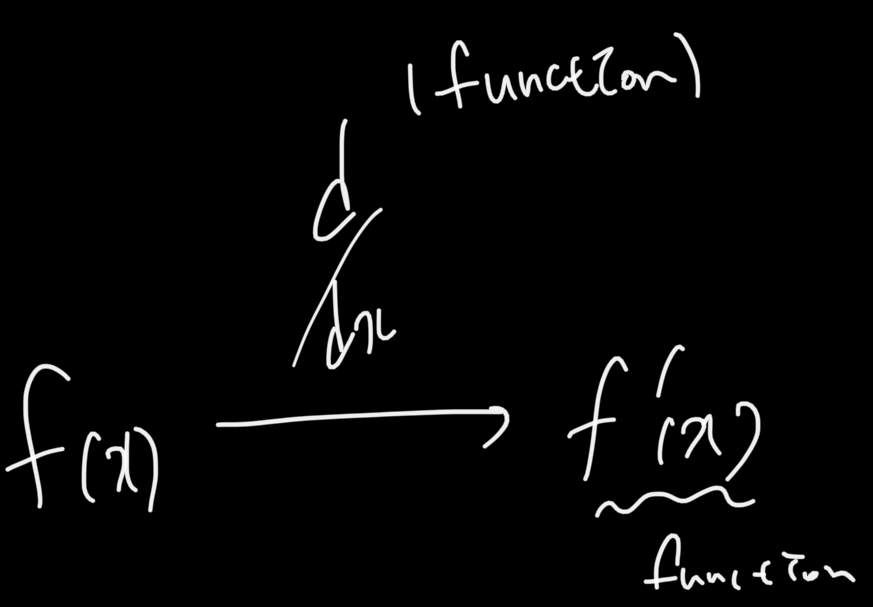 (function)
d/dx
f(x) → f'(x)
function